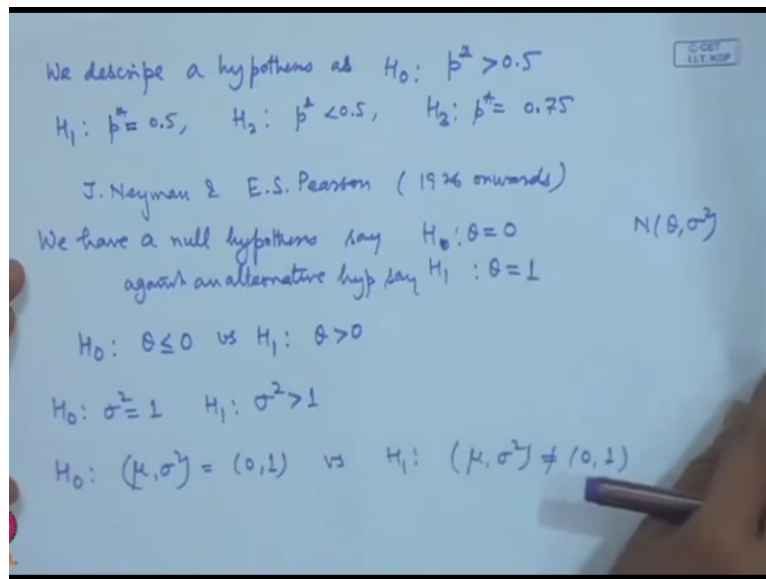 We descripe a hypothesis as H₀: p* > 0.5
© CET
I.I.T. KGP
H₁: p* = 0.5, H₂: p* < 0.5, H₃: p* = 0.75
J. Neyman & E.S. Pearson (1926 onwards)
We have a null hypothesis say H₀: θ = 0 N(θ, σ²)
against an alternative hyp say H₁ : θ = 1
H₀: θ ≤ 0 vs H₁: θ > 0
H₀: σ² = 1 H₁: σ² > 1
H₀: (μ, σ²) = (0,1) vs H₁: (μ, σ²) ≠ (0,1)